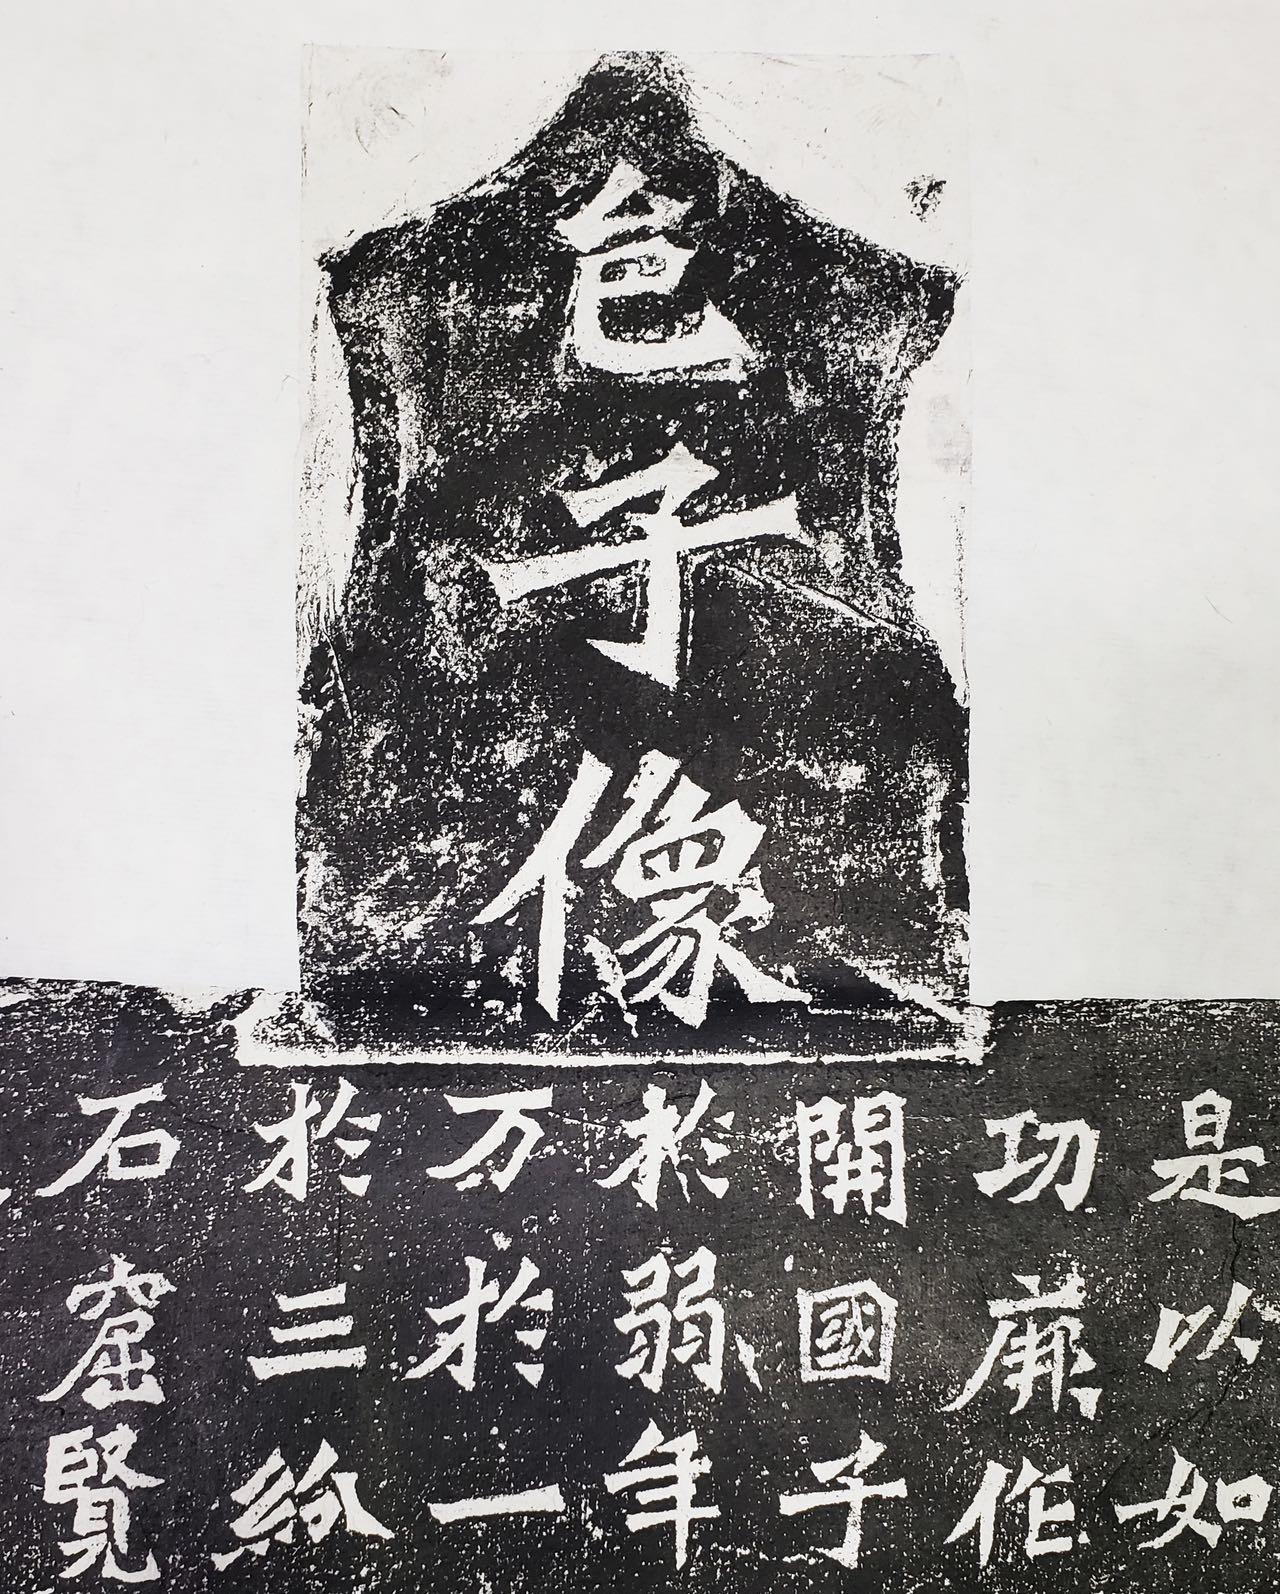 邑子像
是以如
功厥作
開國子
於弱年
万於一
於三紛
石窟覽